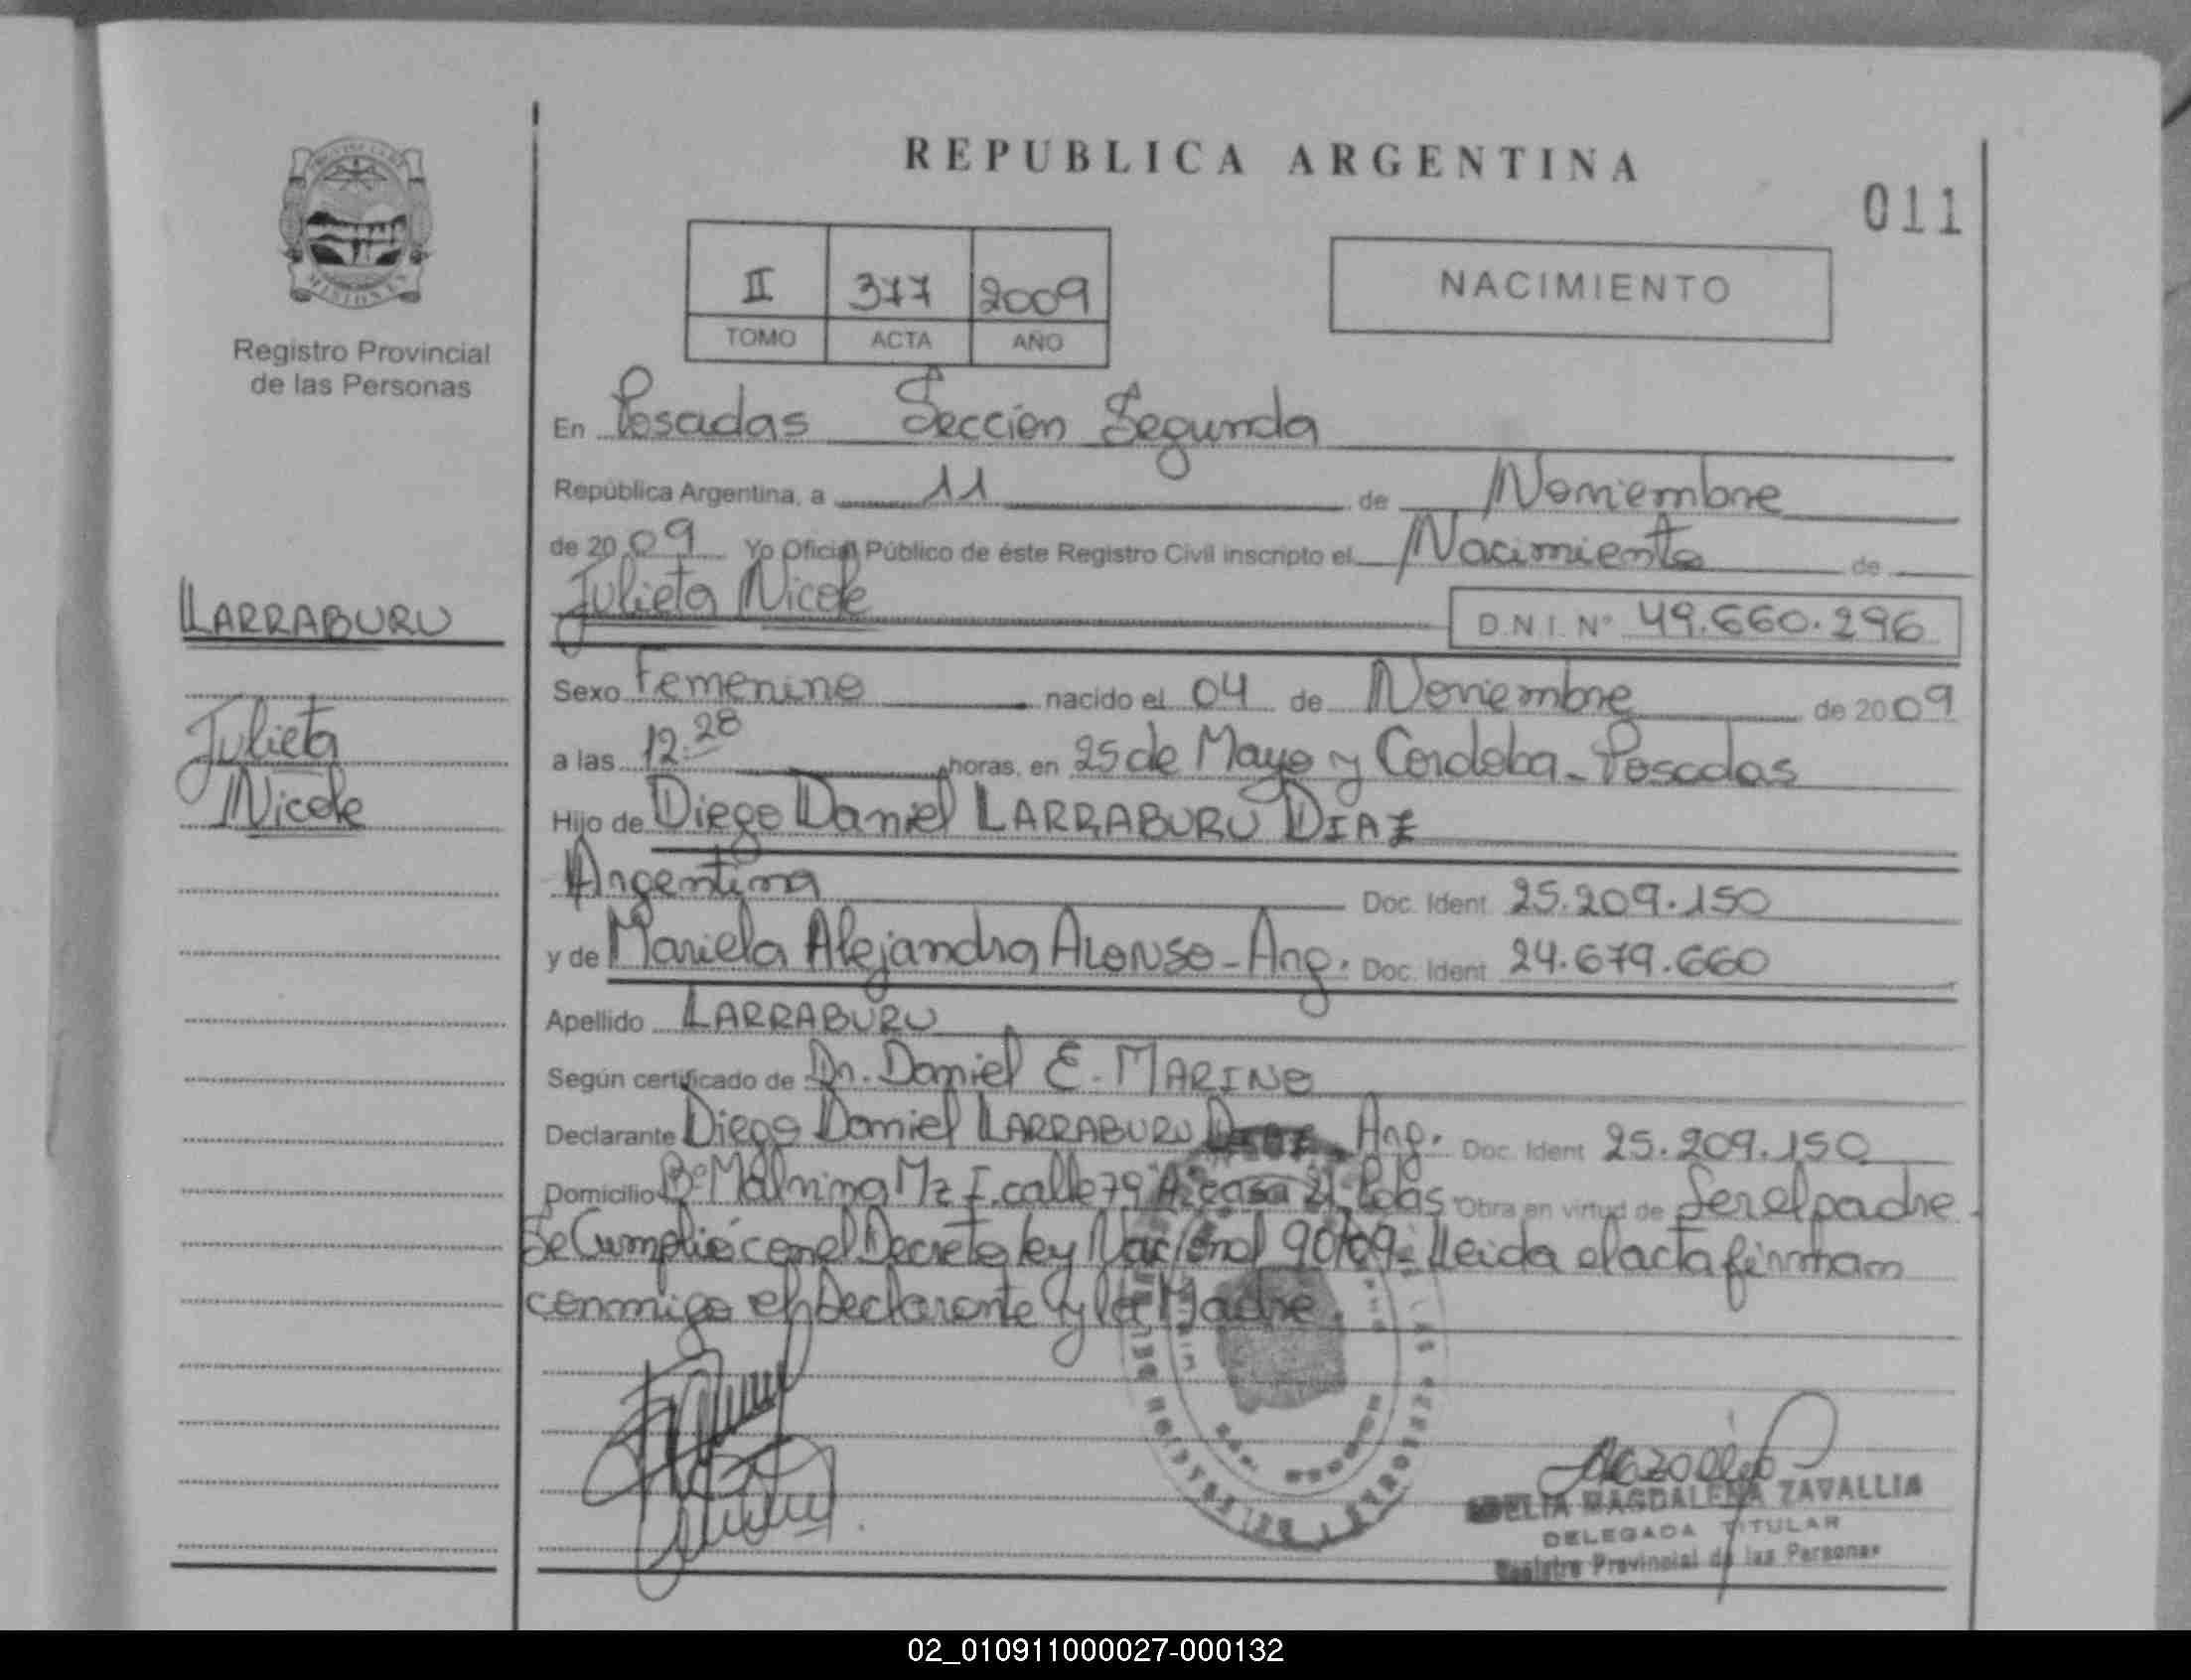 REPUBLICA ARGENTINA
011
MISIONES
Registro Provincial
de las Personas
II 377 2009
TOMO ACTA AÑO
NACIMIENTO
En Posadas Sección Segunda
República Argentina, a 11 de Noviembre
de 2009 Yo Oficial Público de éste Registro Civil inscripto el Nacimiento de
Julieta Nicole D.N.I. Nº 49.660.296
LARRABURU
Julieta
Nicole
Sexo Femenino nacido el 04 de Noviembre de 2009
a las 12:28 horas, en 25 de Mayo y Cordoba - Posadas
Hijo de Diego Daniel LARRABURU DIAZ
Argentina Doc. Ident. 25.209.150
y de Mariela Alejandra ALONSO - Arg. Doc. Ident. 24.679.660
Apellido LARRABURU
Según certificado de Dr. Daniel E. MARINO
Declarante Diego Daniel LARRABURU Arg. Doc. Ident. 25.209.150
Domicilio Bº Mz I. calle 79 A casa 21 Pdas Obra en virtud de Ser el padre
Se Cumplió con el Decreto ley Nacional 90/09 - Leida el acta firman
conmigo el Declarante y la Madre.
MAGDALENA ZAVALLIA
DELEGADA TITULAR
Registro Provincial de las Personas
02_010911000027-000132